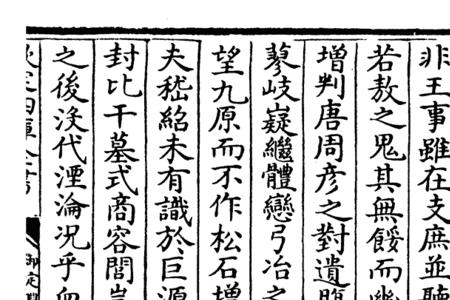 非王事雖在支庶並聽
若敖之鬼其無餒而
增判唐周彦之對遺
蓼岐嶷繼體戀弓冶之
望九原而不作松石增
夫嵇紹未有識於巨源
封比干墓式商容閭豈
之後淡代湮淪况乎
欽定四庫全書
御定